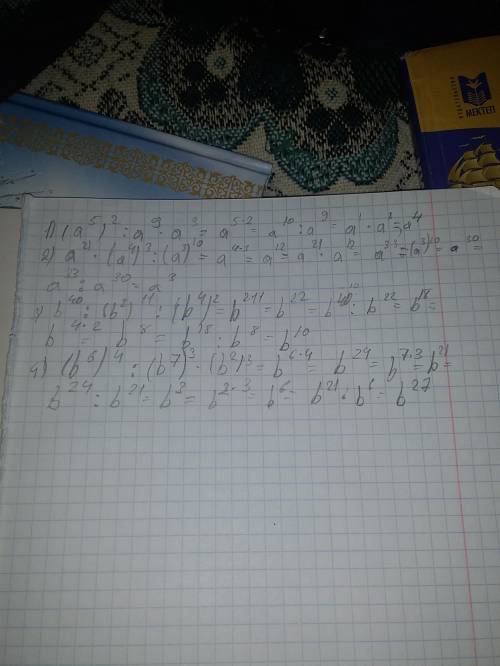 МЕКТЕП
1) (a⁵)² : a⁹ · a³ = a⁵·² = a¹⁰ : a⁹ = a¹ · a³ = a⁴
2) a²¹ · (a⁴)³ : (a³)¹⁰ = a⁴·³ = a¹² = a²¹ · a¹² = a³³ = (a³)¹⁰ = a³⁰
a³³ : a³⁰ = a³
b⁴⁰ : (b²)¹¹ : (b⁴)² = b²·¹¹ = b²² = b⁴⁰ : b²² = b¹⁸ =
b⁴·² b⁸ = b¹⁸ : b⁸ = b¹⁰
4) (b⁶)⁴ : (b⁷)³ · (b²)³ = b⁶·⁴ = b²⁴ = b⁷·³ = b²¹ =
b²⁴ : b²¹ = b³ = b²·³ = b⁶ = b²¹ · b⁶ = b²⁷